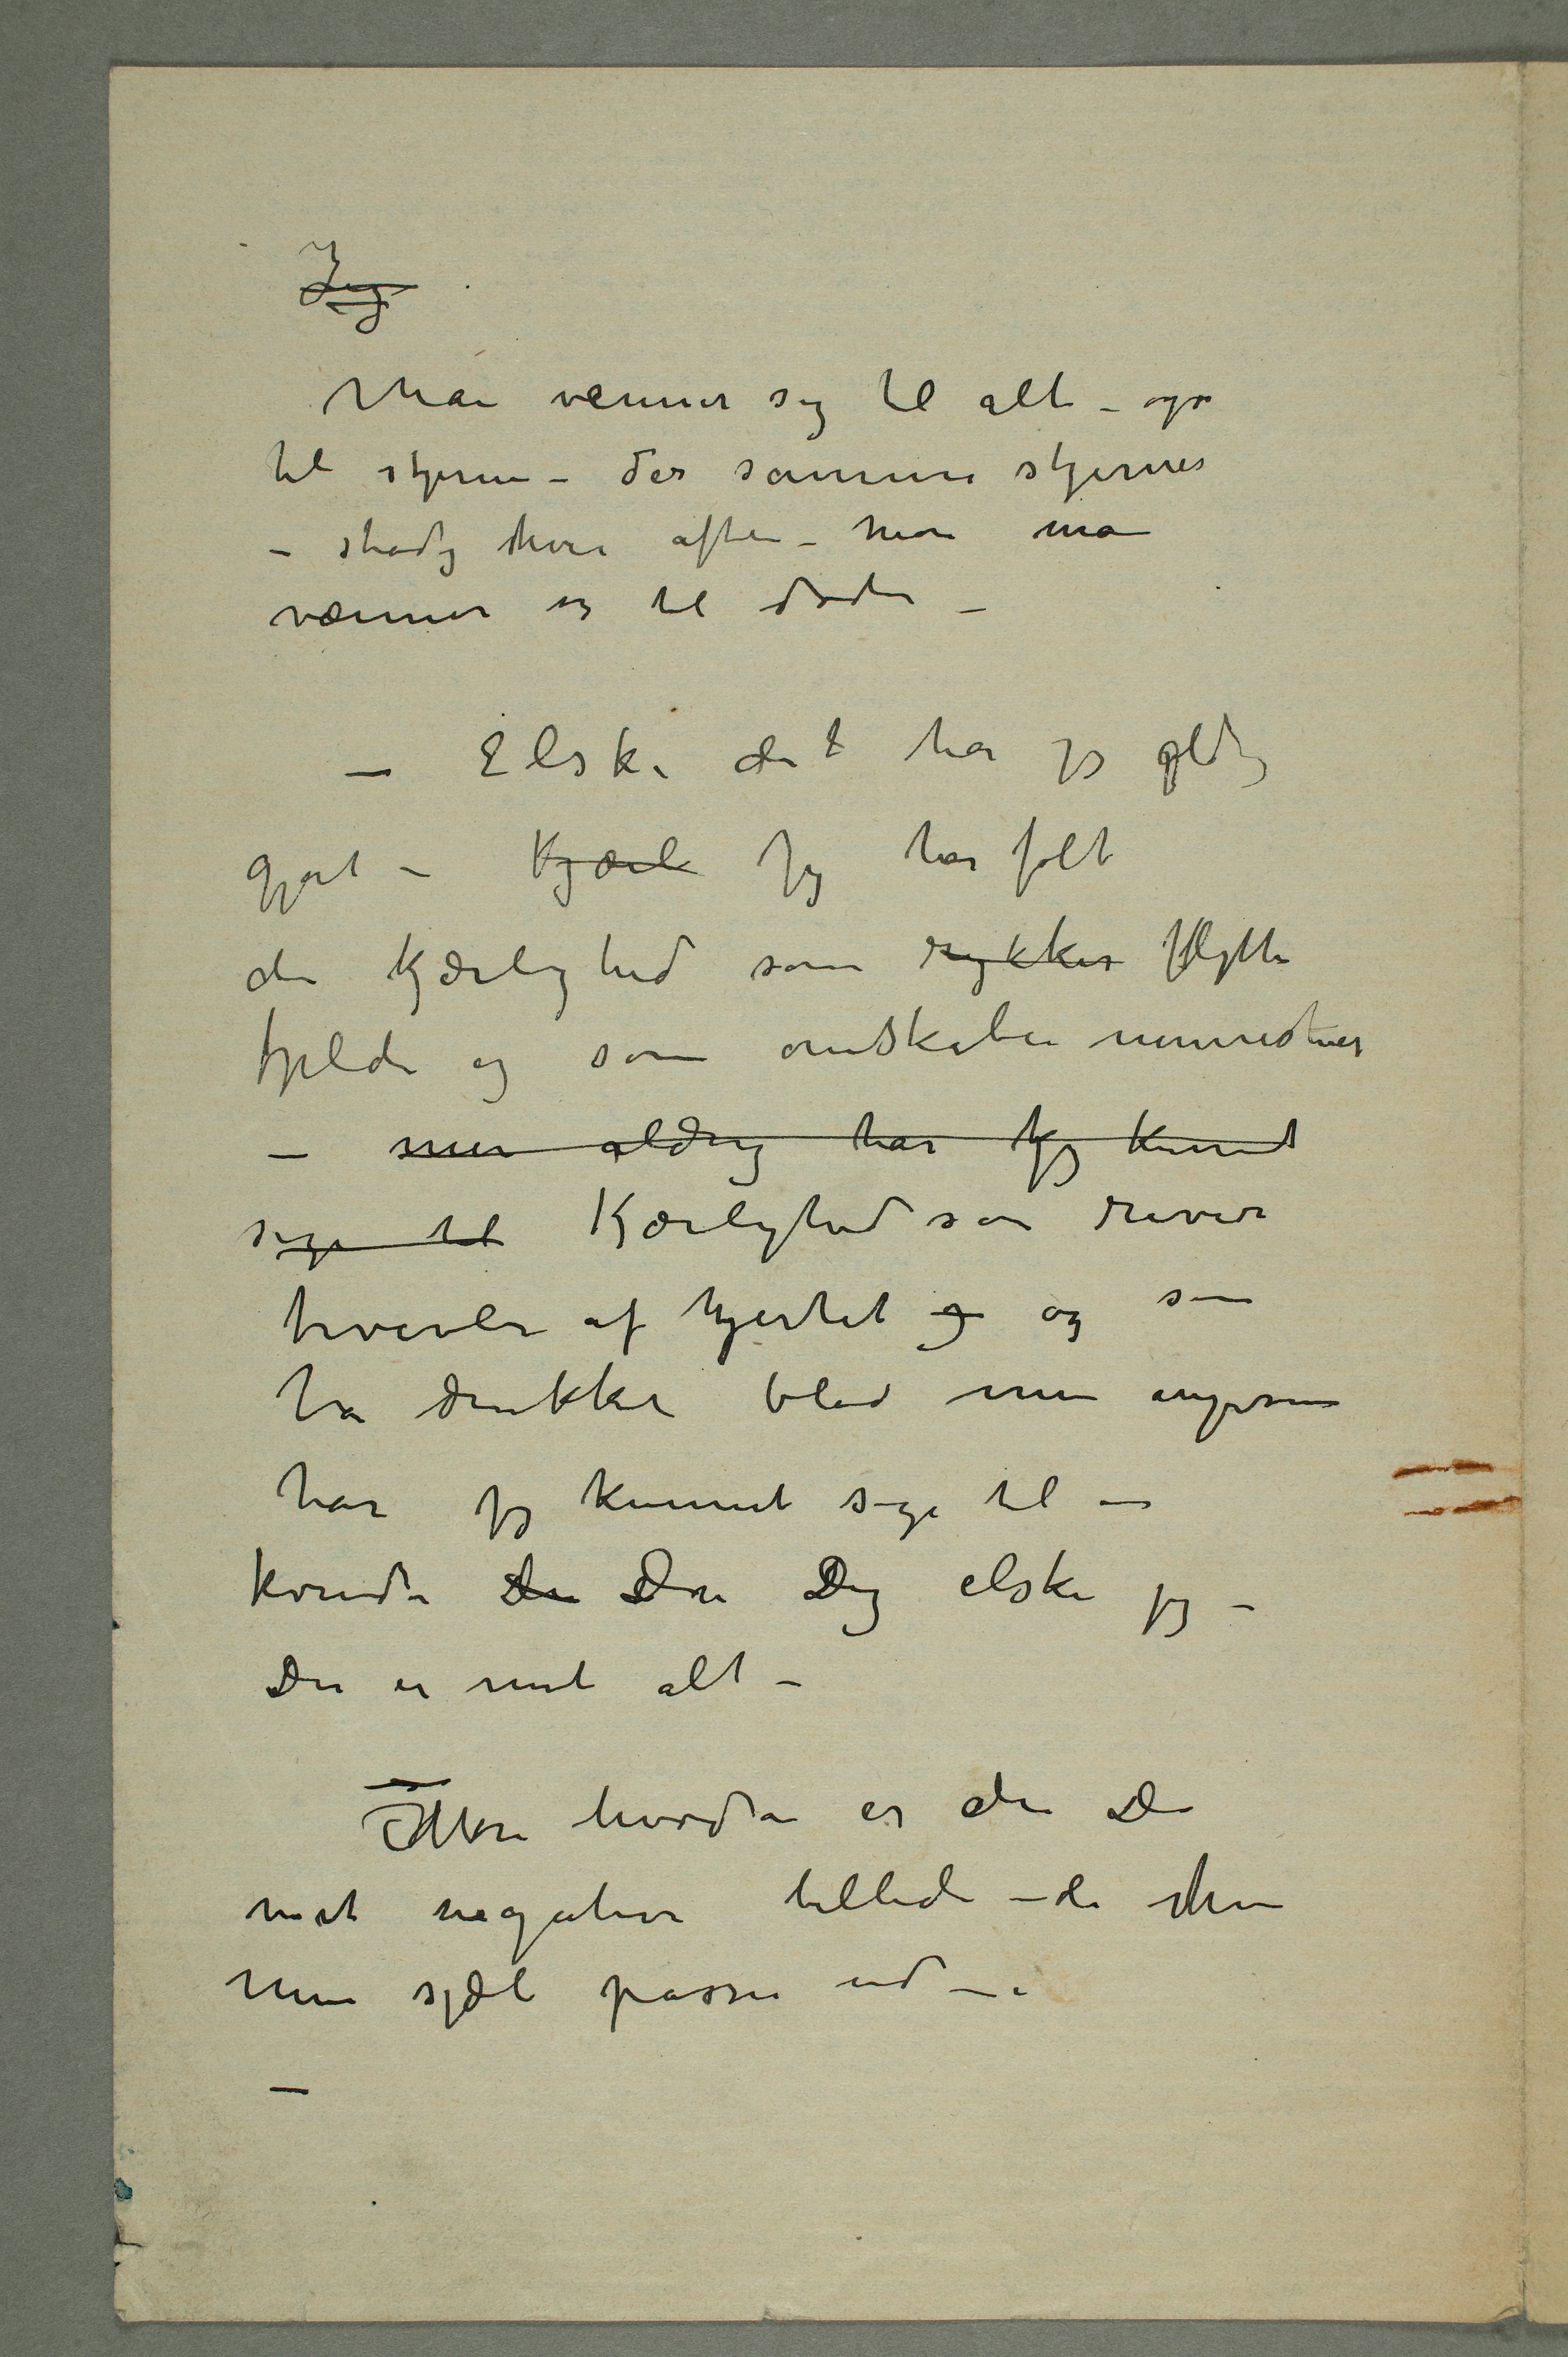 Jeg
Man venner sig til alt – også
til stjerner – de samme stjerner
– stadig hver aften – men man
vænner sig til døden –
– Elske det har jeg aldrig
gjort – Kjærl Jeg har følt
den Kjærlighed som rykker flytter
fjelde og som omskaber mennesker
– men aldrig har jeg kunnet
sige til Kjærlighed som river
hjertet og og som
har drukket blod men ingensinde
har jeg kunnet sige til en
kvinde Du Du Dig elsker jeg –
Du er mit alt –
hvordan er den De
mit negative billede – de
min sjæl passer ind –
–